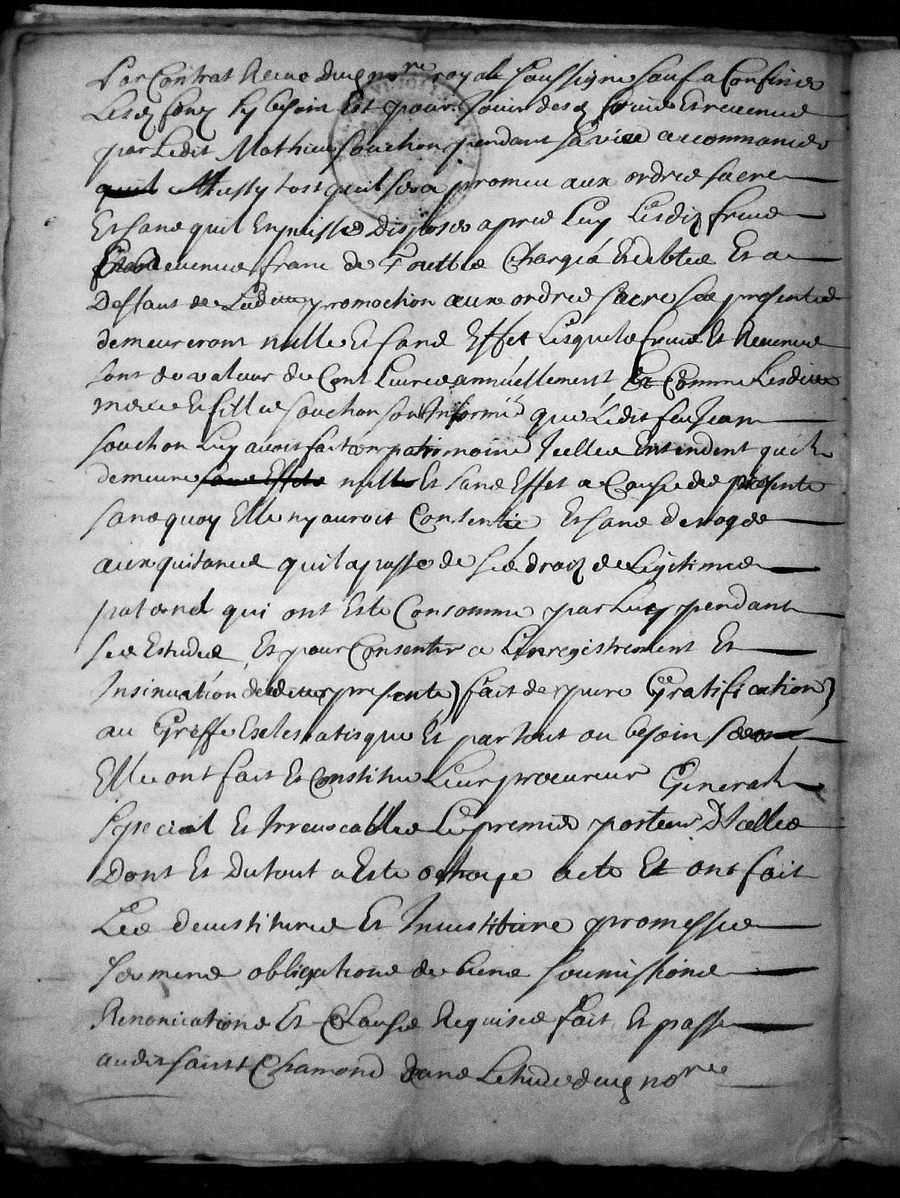 par Contrat Receu dud no.re royal soussigne sauf a Confiner
Lesd fonz sy besoin Est pour Jouir desd fruis Et revenus
par Ledit Mathieu souchon pendant sa vie a commancer
quil Aussy tost quil sera promeu aux ordres sacres
Et sans quil En puisse disposer apres Luy Lesdiz fruis
Et Revenus franc de Touttes Charges Et debtes Et a
Deffaut de Laditte promotion aux ordres sacres Les presentes
demeureront nulles Et sans Effet Lesquels fruis Et Revenus
sont de valeur de Cent Livres annuellement Et Comme Lesdittes
mere Et fille souchon sont Informés que Ledit feu Jean
souchon Luy avoit fait un patrimoine Icelles Entendent quil
demeure sans Effets nulle Et sans Effet a Cause des presentes
sans quoy Elles ny auroit Consentie Et sans deroger
aux quitances quil a passe de ses droiz de Legitimes
paternel qui ont Esté Consommé par Luy pendant
ses Estudes Et pour Consentir a Lenregistrement Et
Insinuation desdittes presentes fait de pure Gratification
au Greffe Eclesiatisque Et partout ou besoin sera
Elles ont fait Et Constitue Leur procureur General
special Et Irrevocables Le premier porteur D'Icelles
Dont Et du tout a Este octroye acte Et ont fait
Les devestitures Et Investiture promesses
sermens obligations de biens soumissions
Renonications Et Clauses Requises fait Et passe
audit saint Chamond dans Lestude dud no.re